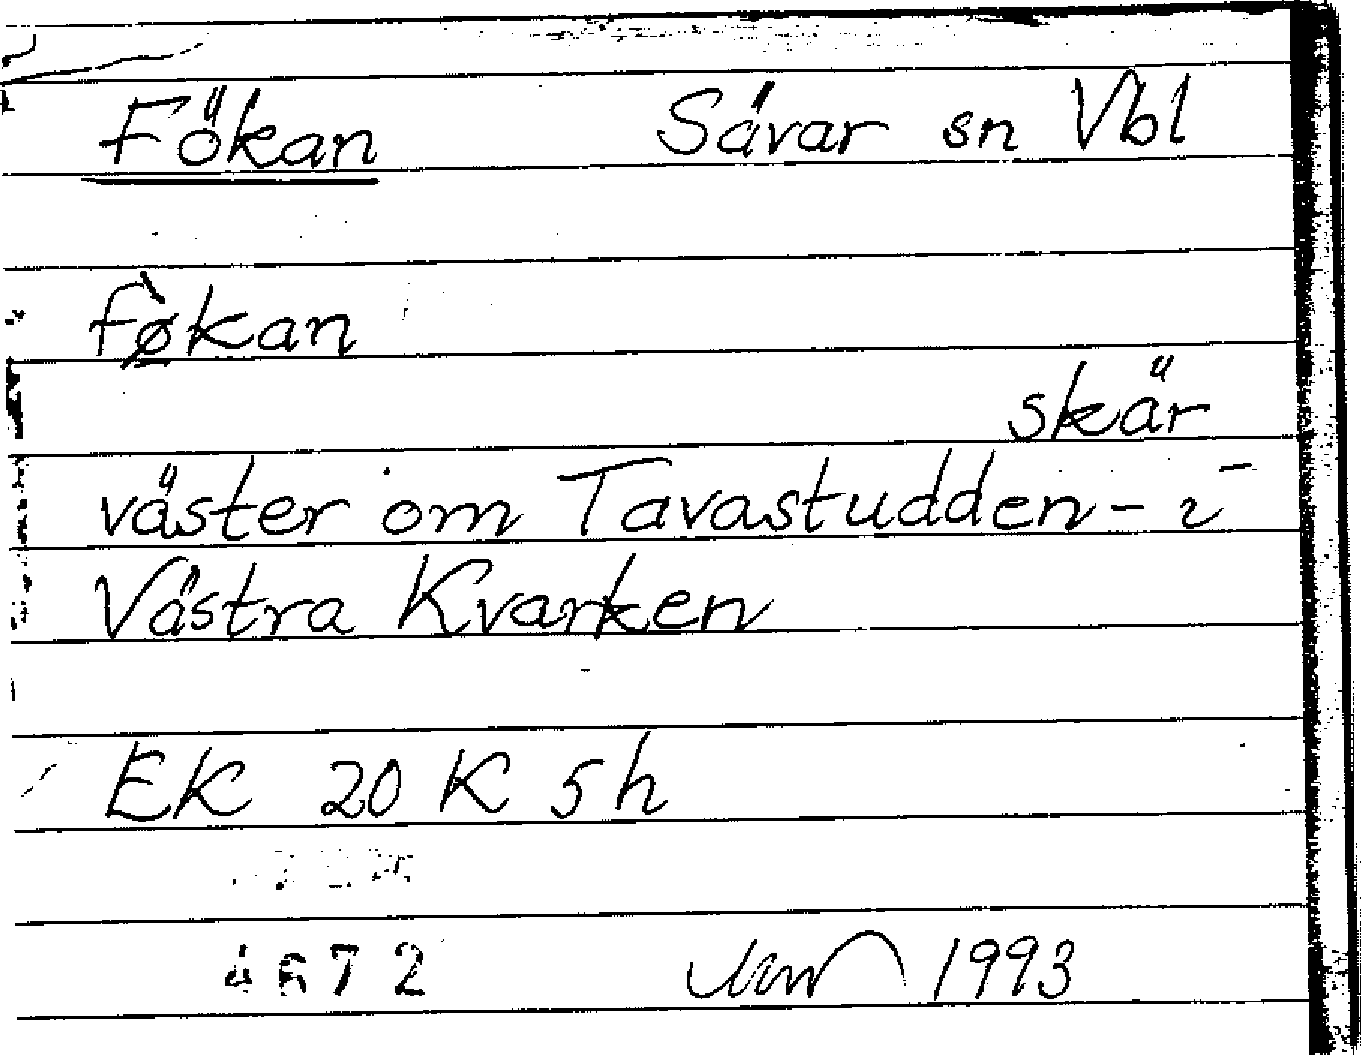 Fökan Sävar sn Vbl
fø̀kan
skär
väster om Tavastudden - i
Västra Kvarken
EK 20 K 5h
4672 1993